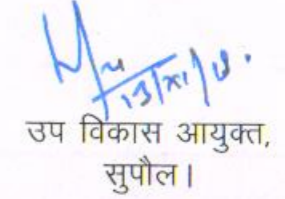 13/XI/18.
उप विकास आयुक्त,
सुपौल।